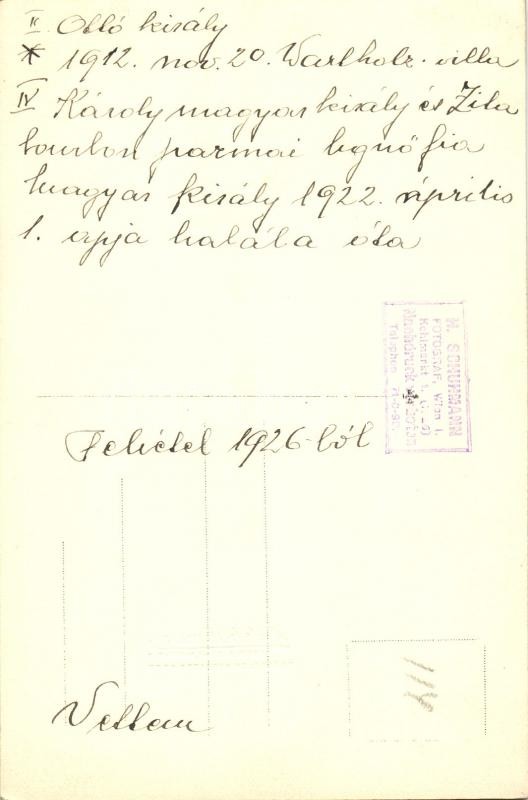 II Ottó király
* 1912. nov. 20. Wartholz-villa
IV Károly magyar király és Zita
bourbon parmai hgnő fia
Magyar király 1922. április
1. apja halála óta
M. SCHUHMANN
FOTOGRAF, Wien I.
Kohlmarkt 1.
Telephon
Felvétel 1926-ból
Vettem